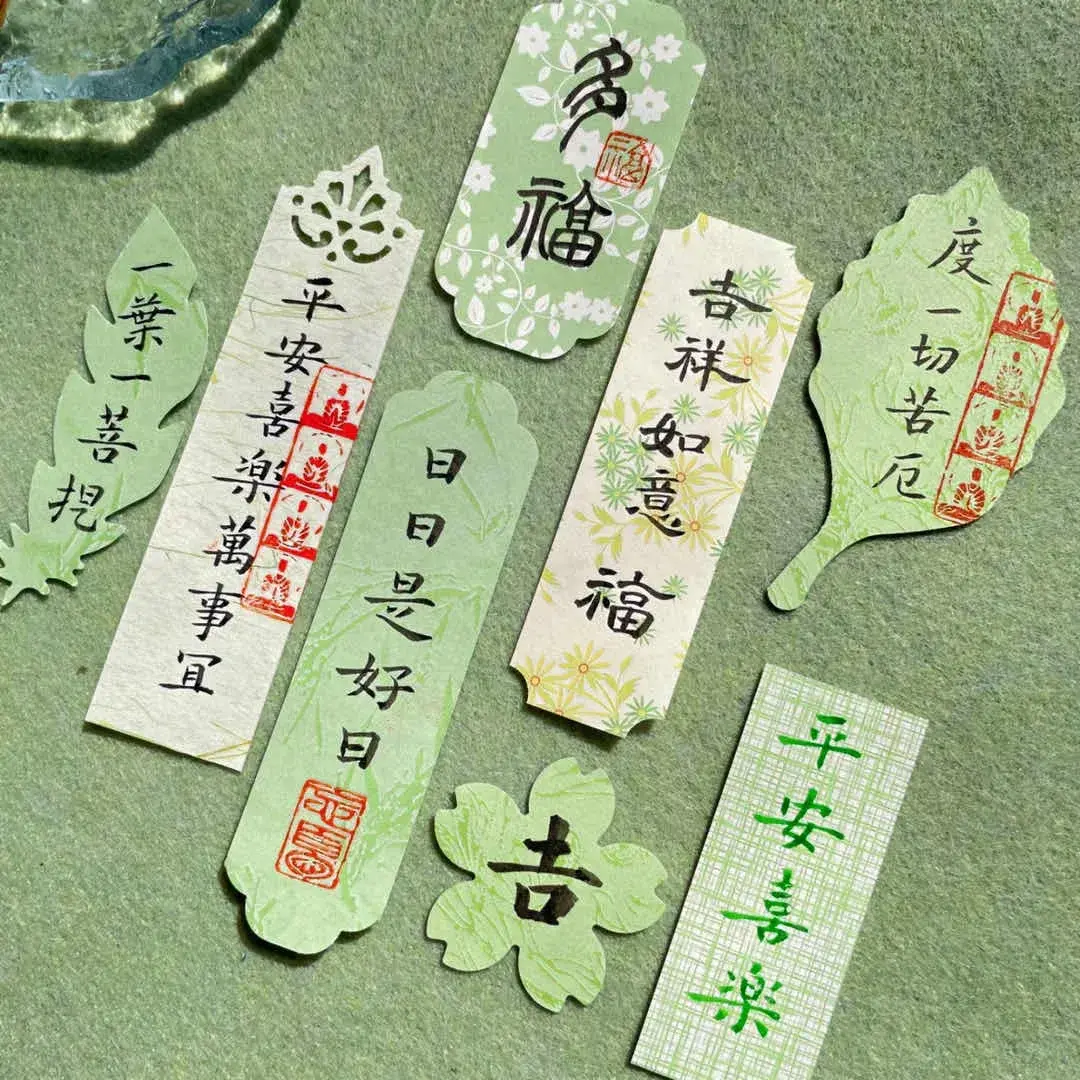 一葉一菩提
平安喜樂萬事宜
多福
日日是好日
吉祥如意 福
度一切苦厄
吉
平安喜樂